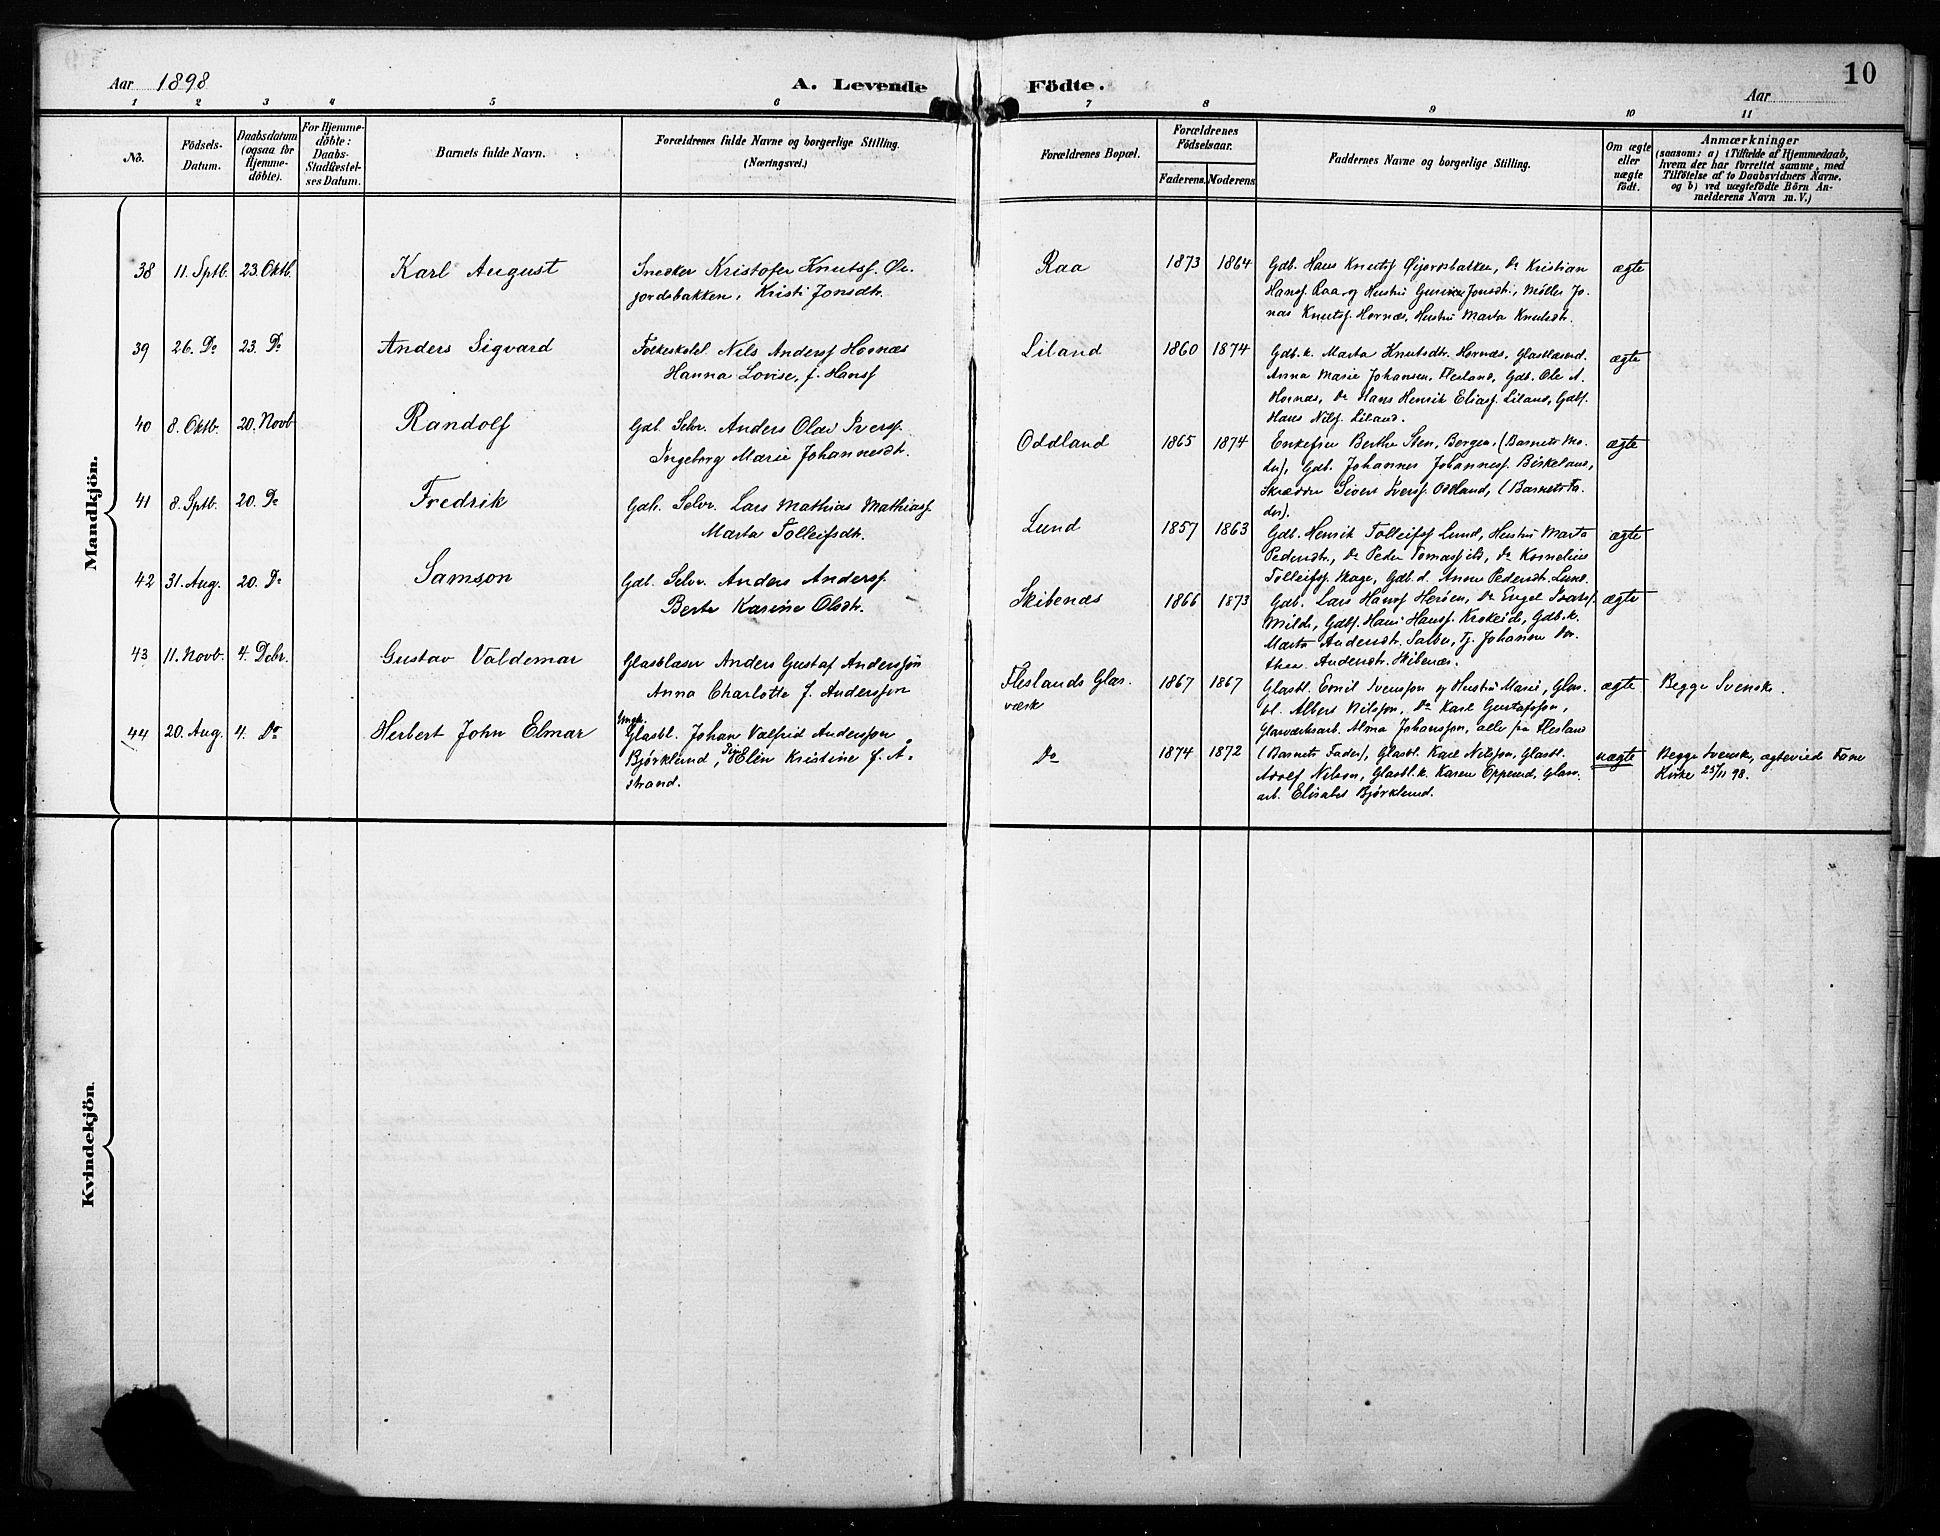 Aar 1898
A. Levende Födte.
10
Aar
1 2 3 4 5 6 7 8 9 10 11
No.
Födsels-Datum.
Daabsdatum (ogsaa for Hjemme-döbte).
For Hjemme-döbte: Daabs-Stadfæstel-ses Datum.
Barnets fulde Navn.
Forældrenes fulde Navne og borgerlige Stilling.
(Næringsvei.)
Forældrenes Bopæl.
Forældrenes Födselsaar.
Faderens. Moderens.
Faddernes Navne og borgerlige Stilling.
Om ægte eller uægte födt.
Anmærkninger
(saasom: a) i Tilfælde af Hjemmedaab,
hvem der har forrettet samme, med
Tilföielse af to Daabsvidners Navne,
og b) ved uægtefödte Börn An-
melderens Navn m. V.)
Mandkjön.
38 11. Sptb. 23. Oktb. Karl August
Snedker Kristofer Knutsf. Øi-
jordsbakken, Kristi Jonsdtr.
Raa 1873 1864
Gdb. Hans Knutsf Øijordsbakken, Do Kristian
Hansf. Raa og Hustru Jonsdtr, Møller Jo-
nas Knutsf. Hornæs, Hustru Marta Knutsdtr.
ægte
39 26. Do 23. Do Anders Sigvard
Folkeskolel. Nils Andersf Hornæs
Hanna Lovise, f. Hansf
Liland 1860 1874
Gdb.k. Marta Knutsdtr. Hornæs,
Anna Marie Johansen, Flesland, Gdb. Ole A.
Hornæs, Do Hans Henrik Eliasf. Liland, Gdbf.
Hans Nilsf. Liland.
ægte
40 8. Oktb. 20. Novb Randolf
Gdb. Selv. Anders Olai Iversf.
Ingeborg Marie Johannesdtr.
Oddland 1865 1874
Enkefru Berthe Sten, Bergen, (Barnets Mo-
der), Gdb. Johannes Johannesf. Birkeland,
Skrædder Sivert Iversf. Oddland, (Barnets Fa-
der).
ægte
41 8. Sptb. 20. Do Fredrik
Gdb. Selv. Lars Mathias Mathiasf
Marta Tolleifsdtr.
Lund 1857 1863
Gdb. Henrik Tolleifsf Lund, Hustru Marta
Pedersdtr, Do Peder Do Kornelius
Tolleifsf. Gdb.d. Anna Pedersdtr. Lund.
ægte
42 31. Aug. 20. Do Samson
Gdb. Selv. Anders Andersf.
Berte Karine Olsdtr.
Skibenæs 1866 1873
Gdb. Lars Hansf Herøen, Do Engel
Milde, Gdbf. Hans Hansf. Krokeide, Gdb.k.
Marta Andersdtr. Tj. Johanne Dor-
thea Andersdtr. Skibenæs.
ægte
43 11. Novb. 4. Debr. Gustav Valdemar
Glasblæser Anders Gustaf Andersson
Anna Charlotte f. Andersson
Fleslands Glas-
værk
1867 1867
Glasbl. Emil Svensson og Hustru Marie, Glas-
bl. Albert Nilsson, Do Karl Gustafsson,
Glasværksarb. Alma Johansson, alle fra Flesland
ægte
Begge Svenske.
44 20. Aug. 4. Do Herbert John Elmar
Ungk.
Glasbl. Johan Valfrid Andersson
Björklund, Pige Elin Kristine f. Å-
strand.
Do 1874 1872
(Barnets Fader), Glasbl. Karl Nilsson, Glasbl.
Adolf Nilson, Glasbl.k. Karen Oppeud, Glas-
arb. Elisabet Björklund.
uægte
Begge Svenske, ægteviede Fane
Kirke 25/11 98.
Kvindekjön.